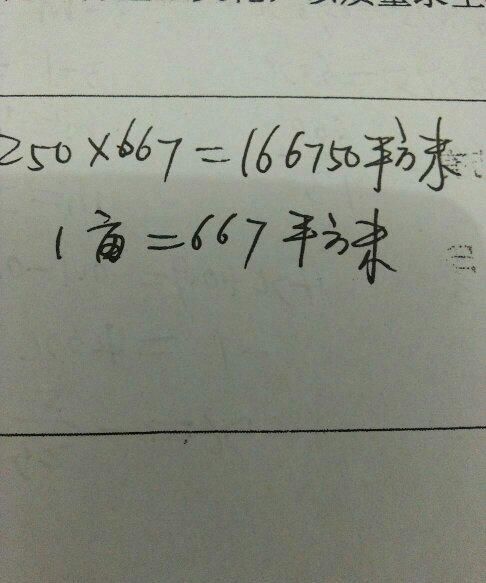 250×667=166750平方米
1亩=667平方米